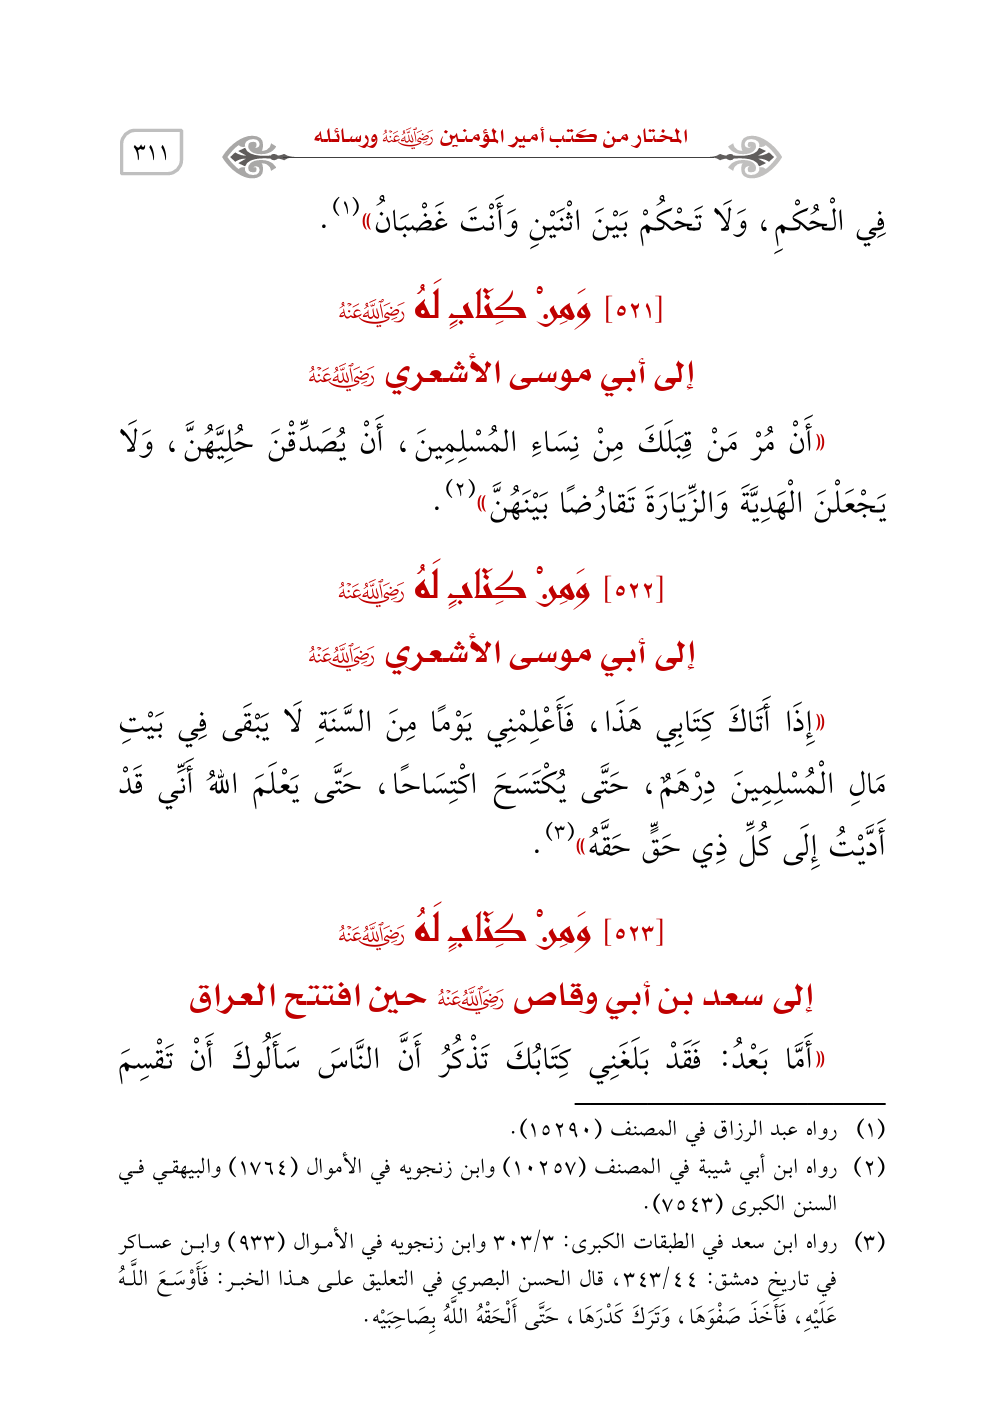 المختار من كتب أمير المؤمنين رَضِيَ اللَّهُ عَنْهُ ورسائله
٣١١
فِي الْحُكْمِ، وَلَا تَحْكُمْ بَيْنَ اثْنَيْنِ وَأَنْتَ غَضْبَانُ»(١).
[٥٢١] وَمِنْ كِتَابٍ لَهُ رَضِيَ اللَّهُ عَنْهُ
إلى أبي موسى الأشعري رَضِيَ اللَّهُ عَنْهُ
«أَنْ مُرْ مَنْ قِبَلَكَ مِنْ نِسَاءِ المُسْلِمِينَ، أَنْ يُصَدِّقْنَ حُلِيَّهُنَّ، وَلَا
يَجْعَلْنَ الْهَدِيَّةَ وَالزِّيَارَةَ تَقارُضًا بَيْنَهُنَّ»(٢).
[٥٢٢] وَمِنْ كِتَابٍ لَهُ رَضِيَ اللَّهُ عَنْهُ
إلى أبي موسى الأشعري رَضِيَ اللَّهُ عَنْهُ
«إِذَا أَتَاكَ كِتَابِي هَذَا، فَأَعْلِمْنِي يَوْمًا مِنَ السَّنَةِ لَا يَبْقَى فِي بَيْتِ
مَالِ الْمُسْلِمِينَ دِرْهَمٌ، حَتَّى يُكْتَسَحَ اكْتِسَاحًا، حَتَّى يَعْلَمَ اللهُ أَنِّي قَدْ
أَدَّيْتُ إِلَى كُلِّ ذِي حَقٍّ حَقَّهُ»(٣).
[٥٢٣] وَمِنْ كِتَابٍ لَهُ رَضِيَ اللَّهُ عَنْهُ
إلى سعد بن أبي وقاص رَضِيَ اللَّهُ عَنْهُ حين افتتح العراق
«أَمَّا بَعْدُ: فَقَدْ بَلَغَنِي كِتَابُكَ تَذْكُرُ أَنَّ النَّاسَ سَأَلُوكَ أَنْ تَقْسِمَ
(١) رواه عبد الرزاق في المصنف (١٥٢٩٠).
(٢) رواه ابن أبي شيبة في المصنف (١٠٢٥٧) وابن زنجويه في الأموال (١٧٦٤) والبيهقي في
السنن الكبرى (٧٥٤٣).
(٣) رواه ابن سعد في الطبقات الكبرى: ٣٠٣/٣ وابن زنجويه في الأموال (٩٣٣) وابن عساكر
في تاريخ دمشق: ٣٤٣/٤٤، قال الحسن البصري في التعليق على هذا الخبر: فَأَوْسَعَ اللَّهُ
عَلَيْهِ، فَأَخَذَ صَفْوَهَا، وَتَرَكَ كَدْرَهَا، حَتَّى أَلْحَقْهُ اللَّهُ بِصَاحِبَيْه.